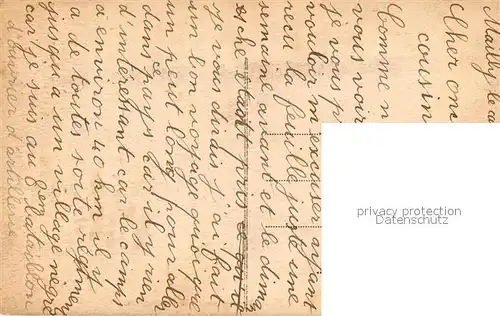 Mailly le
Cher on
cousin
Comme n
vous voir
je vous p
vouloir m'excuser ayant
recu la feuille juste une
semaine avant et le dima
che etait pris
Je vous dirais j'ai fait
un bon voyage quoique
un peut long pour aller
dans ce pays car il y rien
d'intéréssant car le camps
a environ 40 km il y
a de toutes sorte régimen
jusqu'a un village négre
car je suis au 6e bataillon
d'ouvrier d'artillerie
privacy protection
www.oldthing.de